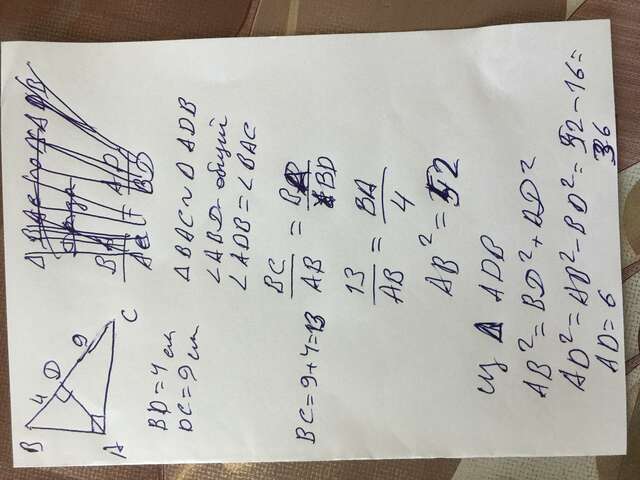 B
4
D
9
A
C
BD = 4 см
DC = 9 см
BC = 9 + 4 = 13
△ BAC ~ △ ADB
∠ ABD - общий
∠ ADB = ∠ BAC
BC/AB = BA/BD
13/AB = BA/4
AB² = 52
из △ ADB
AB² = BD² + AD²
AD² = AB² - BD² = 52 - 16 =
36
AD = 6